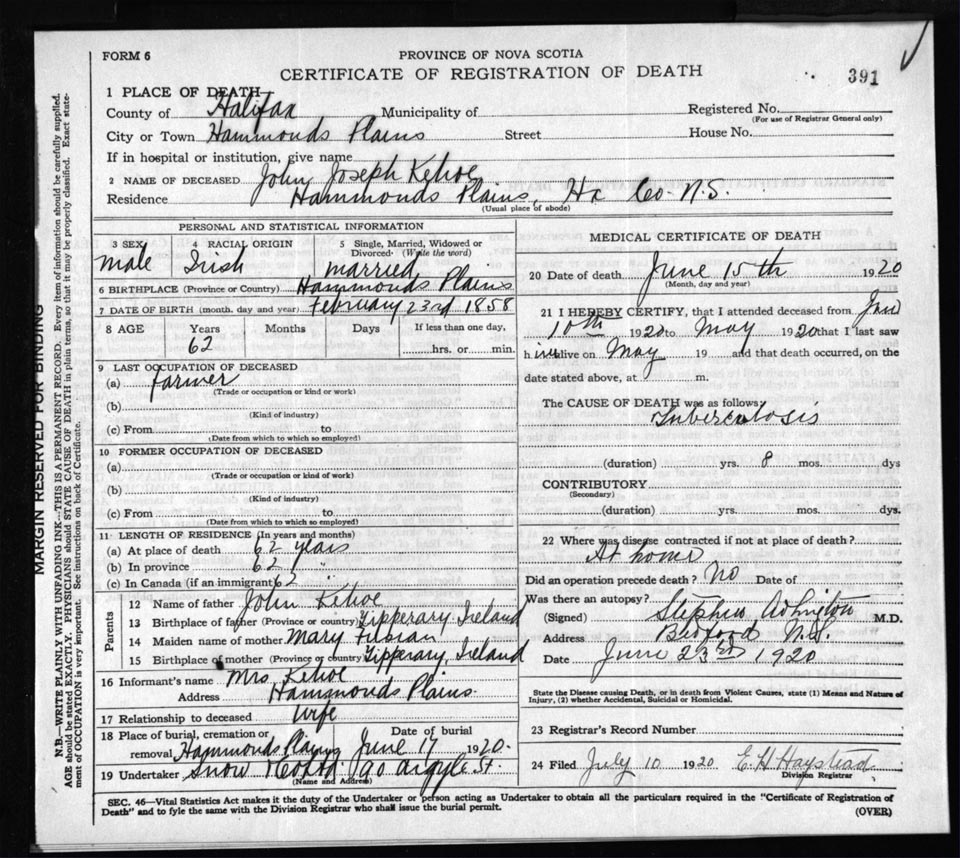 FORM 6
PROVINCE OF NOVA SCOTIA
CERTIFICATE OF REGISTRATION OF DEATH
391
1 PLACE OF DEATH
County of Halifax Municipality of Registered No.
(For use of Registrar General only)
City or Town Hammonds Plains Street House No.
If in hospital or institution, give name
2 NAME OF DECEASED John Joseph Kehoe
Residence Hammonds Plains, Hx Co. N.S.
(Usual place of abode)
PERSONAL AND STATISTICAL INFORMATION
3 SEX 4 RACIAL ORIGIN 5 Single, Married, Widowed or Divorced (Write the word)
Male Irish married
6 BIRTHPLACE (Province or Country) Hammonds Plains
7 DATE OF BIRTH (month, day and year) February 23rd 1858
8 AGE Years Months Days If less than one day,
62 hrs. or min.
9 LAST OCCUPATION OF DECEASED
(a) farmer
(Trade or occupation or kind or work)
(b)
(Kind of industry)
(c) From to
(Date from which to which so employed)
10 FORMER OCCUPATION OF DECEASED
(a)
(Trade or occupation or kind of work)
(b)
(Kind of industry)
(c) From to
(Date from which to which so employed)
11 LENGTH OF RESIDENCE (In years and months)
(a) At place of death 62 years
(b) In province 62 "
(c) In Canada (if an immigrant) 62 "
Parents
12 Name of father John Kehoe
13 Birthplace of father (Province or country) Tipperary Ireland
14 Maiden name of mother Mary
15 Birthplace of mother (Province or country) Tipperary, Ireland
16 Informant's name Mrs Kehoe
Address Hammonds Plains.
17 Relationship to deceased Wife
18 Place of burial, cremation or removal Hammonds Plains Date of burial June 17 1920.
19 Undertaker Snow 90 Argyle St.
(Name and Address)
MEDICAL CERTIFICATE OF DEATH
20 Date of death June 15th 1920
(Month, day and year)
21 I HEREBY CERTIFY, that I attended deceased from Jan
10th 1920 to May 1920 that I last saw
him alive on May 19 and that death occurred, on the
date stated above, at m.
The CAUSE OF DEATH was as follows:
Tuberculosis
(duration) yrs. 8 mos. dys
CONTRIBUTORY
(Secondary)
(duration) yrs. mos. dys.
22 Where was disease contracted if not at place of death?
At home
Did an operation precede death? No Date of
Was there an autopsy?
(Signed) Stephen M.D.
Address Bedford N.S.
Date June 23rd 1920
State the Disease causing Death, or in death from Violent Causes, state (1) Means and Nature of
Injury, (2) whether Accidental, Suicidal or Homicidal.
23 Registrar's Record Number
24 Filed July 10 1920 E. H. Haystead
Division Registrar
SEC. 46—Vital Statistics Act makes it the duty of the Undertaker or person acting as Undertaker to obtain all the particulars required in the "Certificate of Registration of
Death" and to fyle the same with the Division Registrar who shall issue the burial permit.
(OVER)
MARGIN RESERVED FOR BINDING
N.B.—WRITE PLAINLY WITH UNFADING INK—THIS IS A PERMANENT RECORD. Every item of information should be carefully supplied.
AGE should be stated EXACTLY. PHYSICIANS should STATE CAUSE OF DEATH in plain terms, so that it may be properly classified. Exact state-
ment of OCCUPATION is very important. See instructions on back of Certificate.